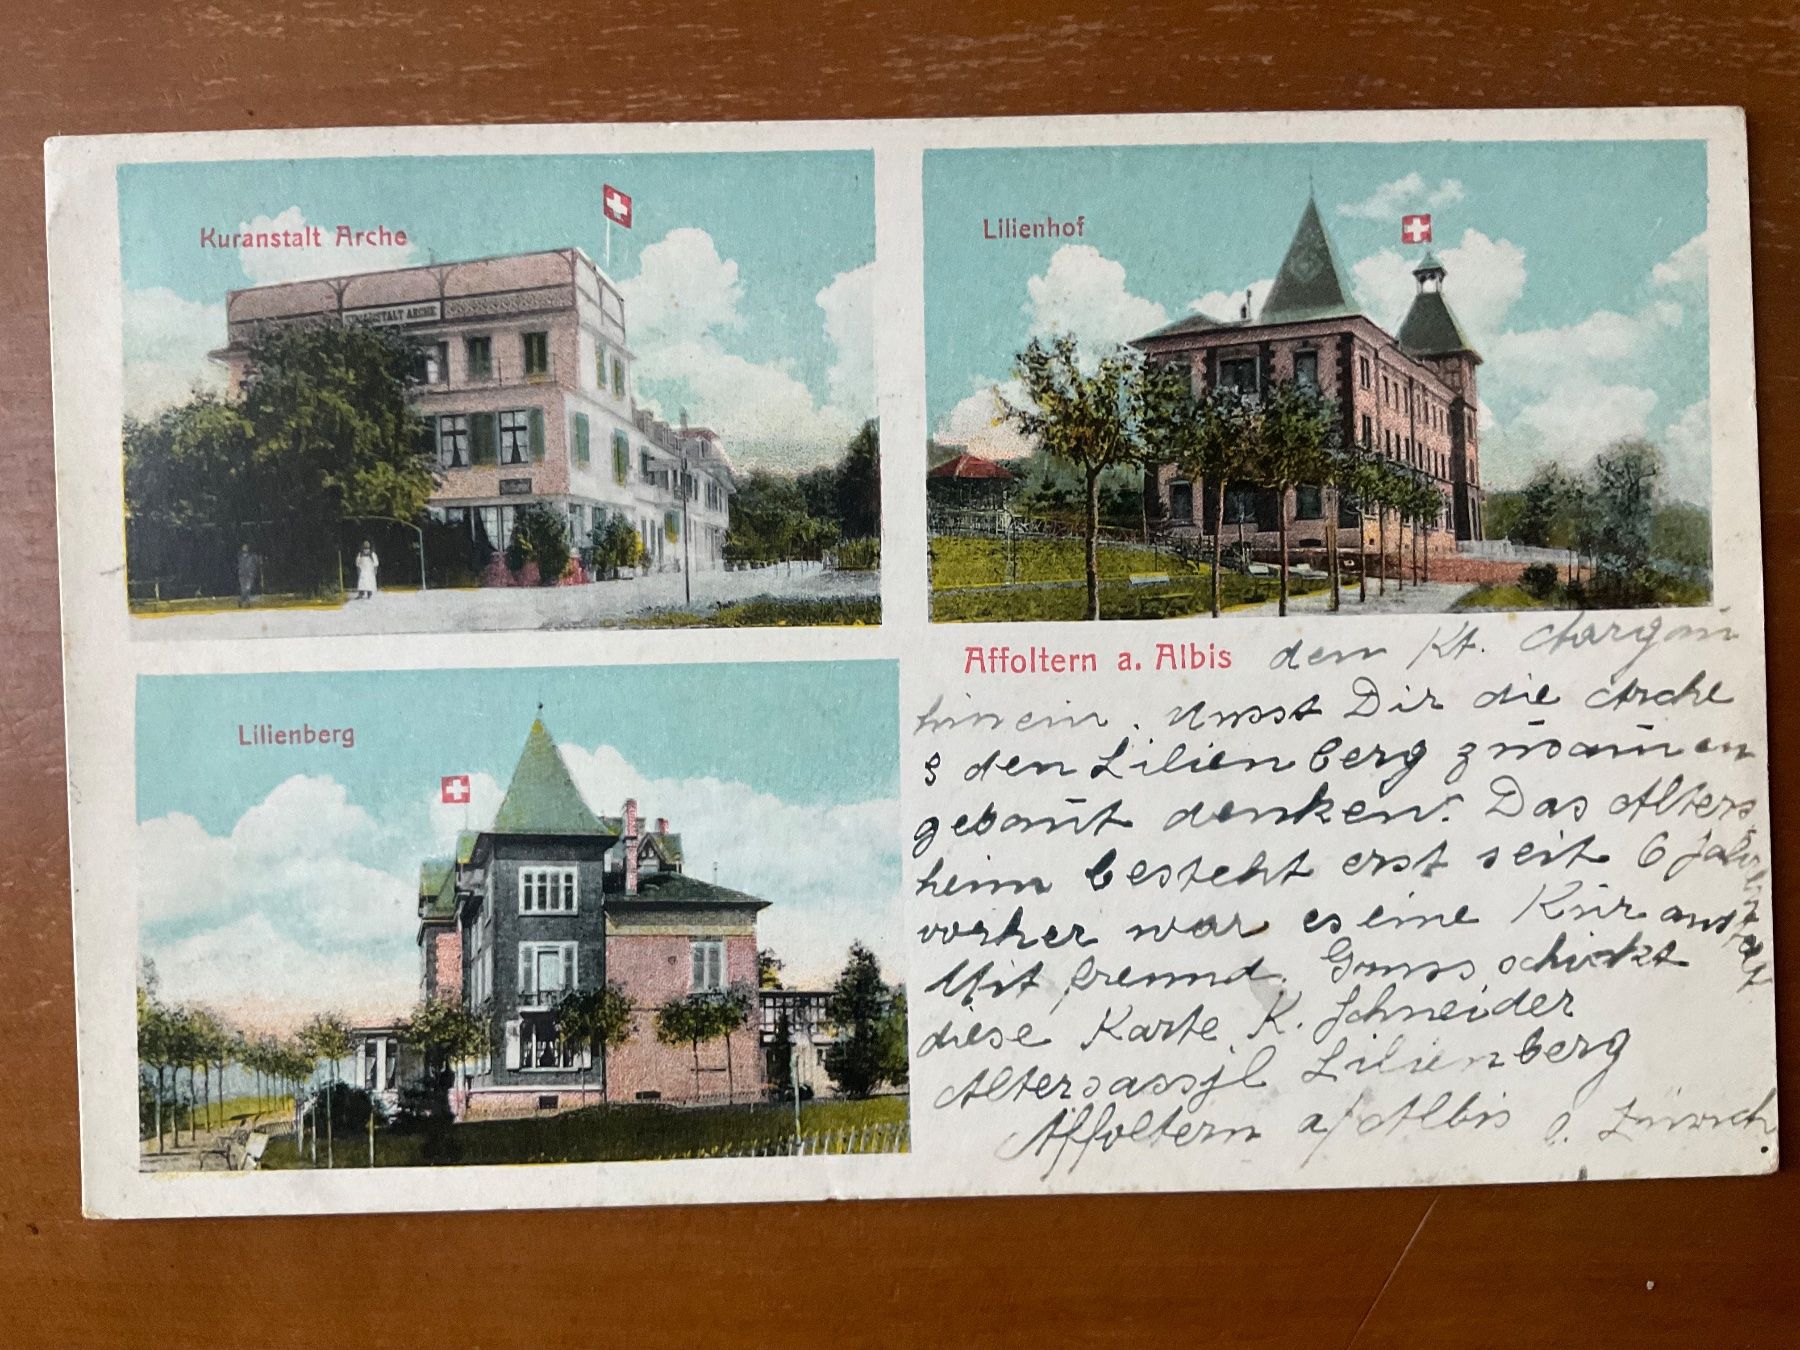 Kuranstalt Arche
KURANSTALT ARCHE
Lilienhof
Lilienberg
Affoltern a. Albis
den Kt. Aargau
hinein. Musst Dir die Arche
& den Lilienberg zusam̄en
gebaut denken. Das Alters
heim besteht erst seit 6 Jahren
vorher war es eine Kuranstalt
Mit freund. Gruss schickt
diese Karte K. Schneider
Altersasyl Lilienberg
Affoltern a/Albis Zürich